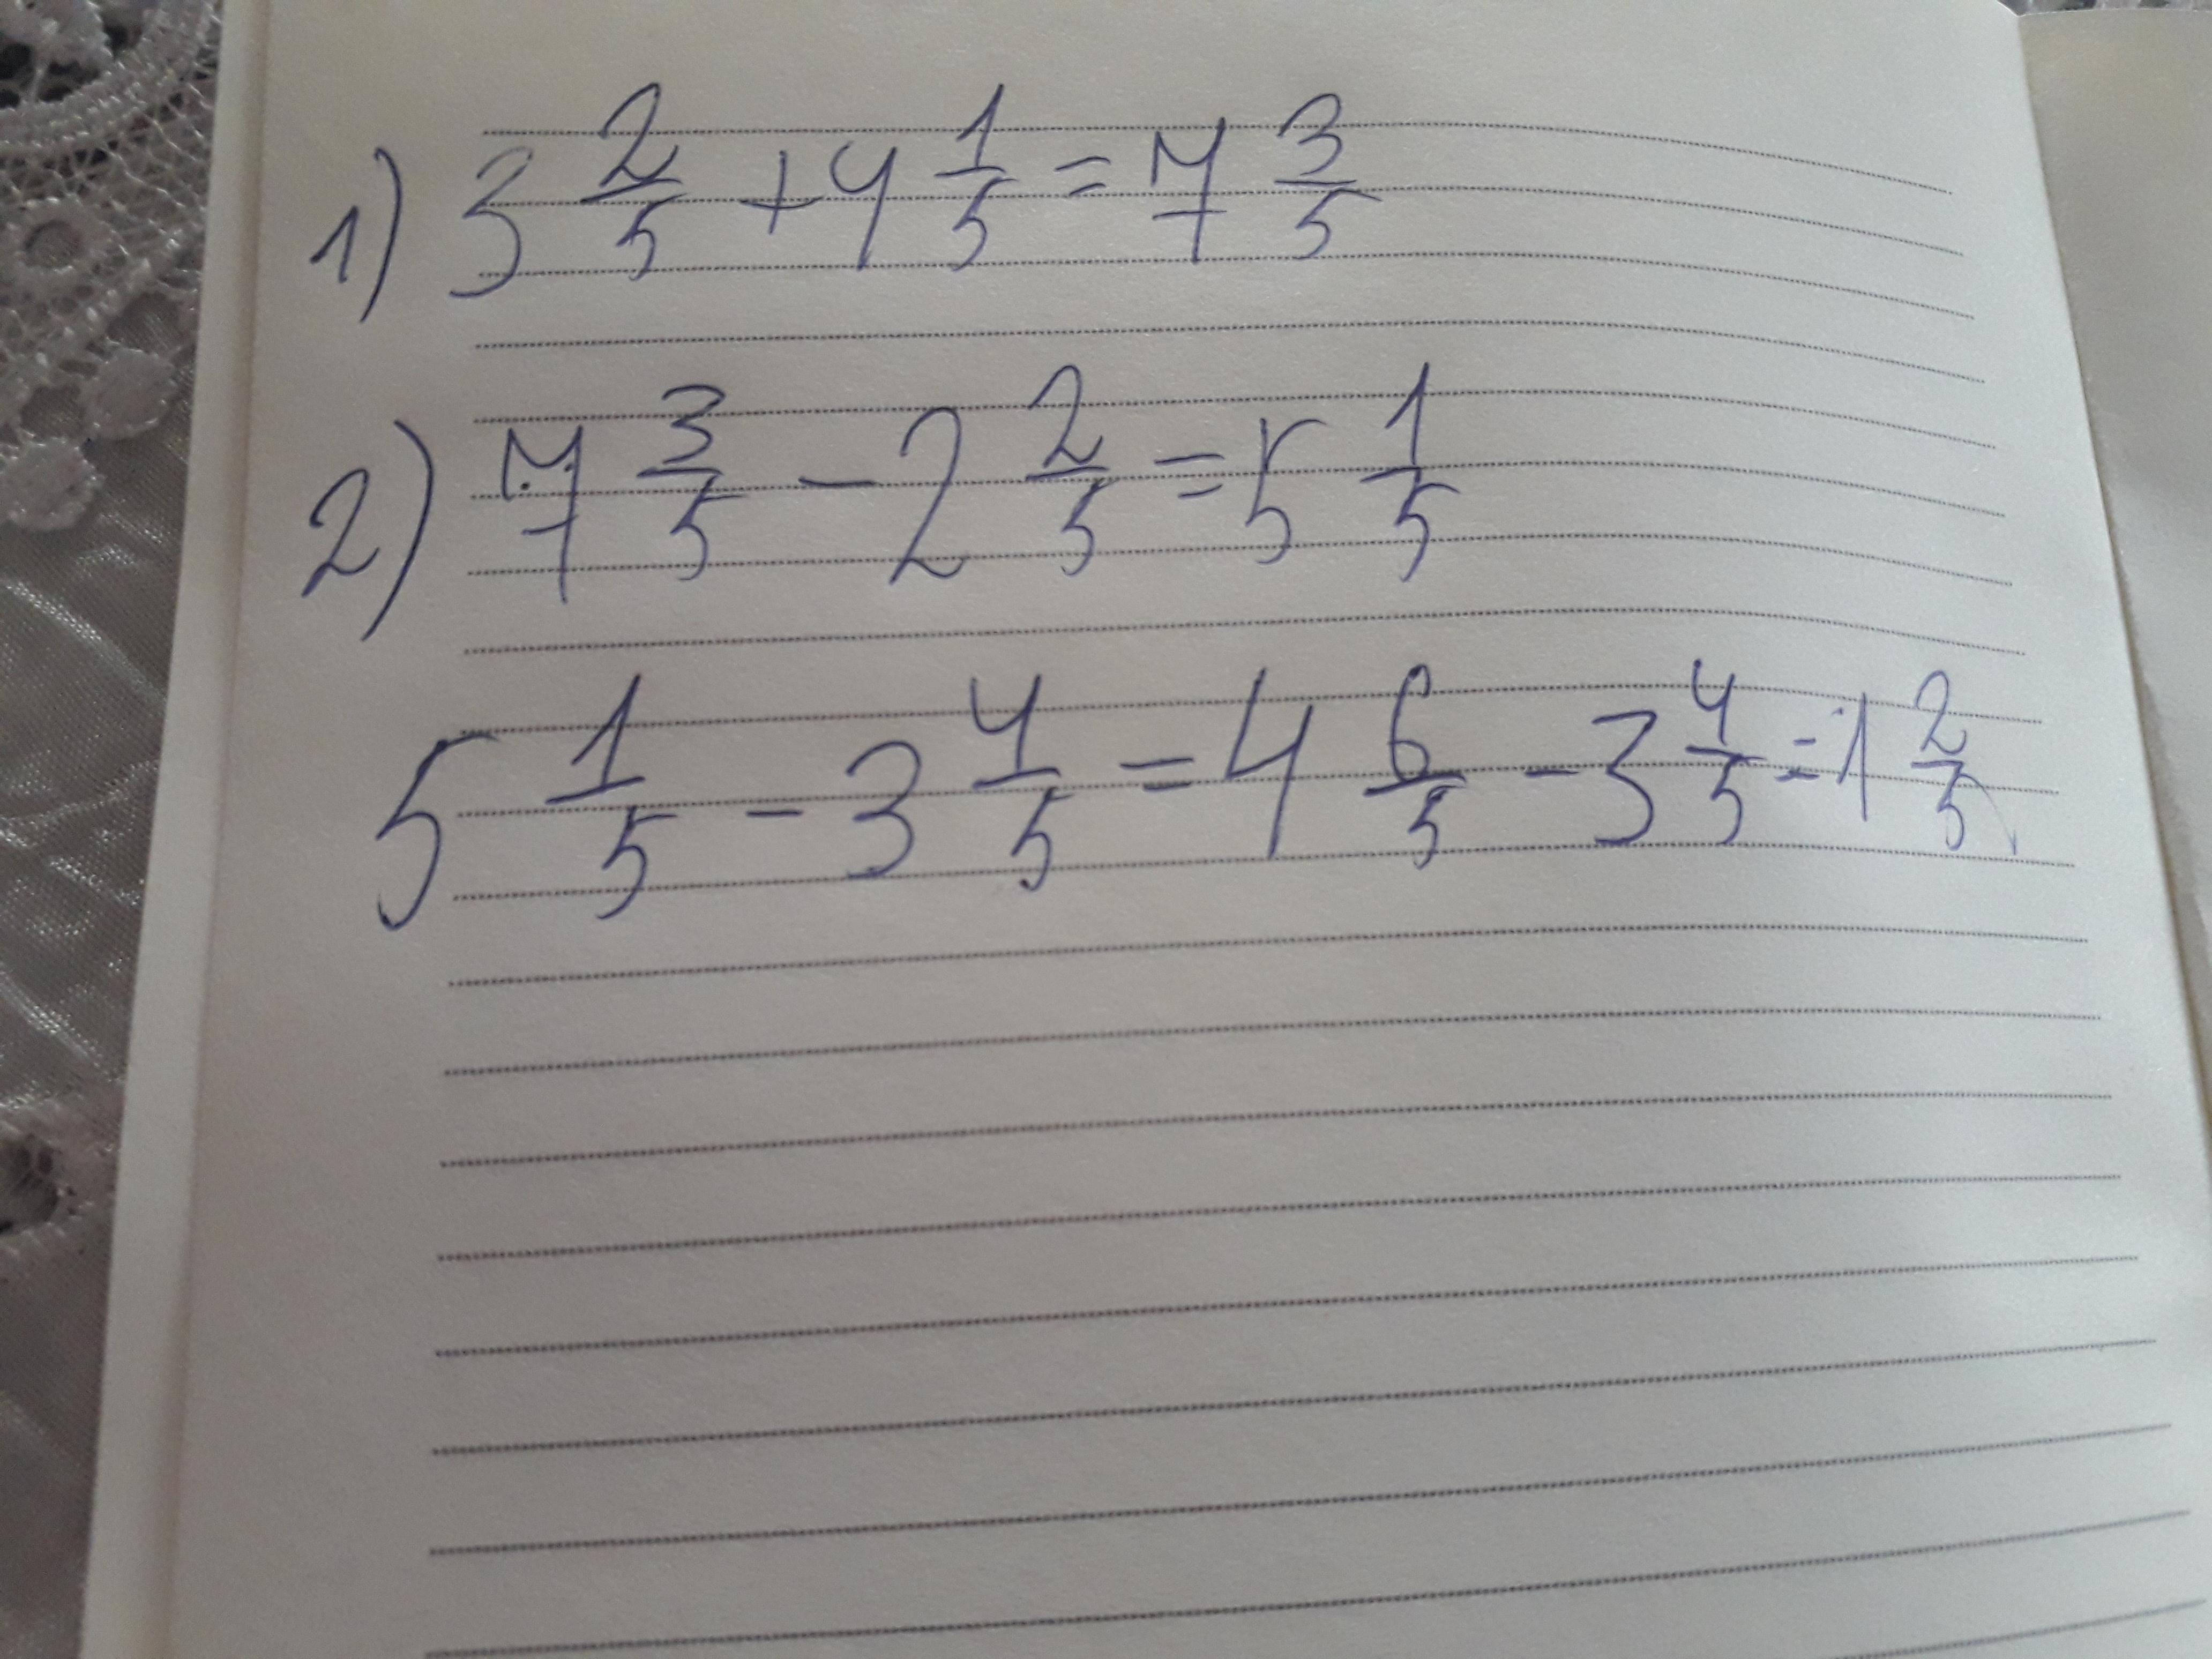 1) 3 2/5 + 4 1/5 = 7 3/5
2) 7 3/5 - 2 2/5 = 5 1/5
5 1/5 - 3 4/5 = 4 6/5 - 3 4/5 = 1 2/5